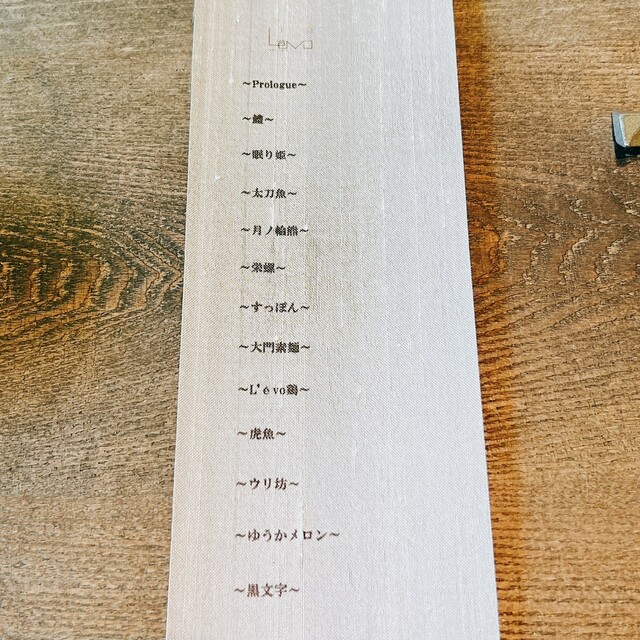 Levo
～Prologue～
～鱧～
～眠り姫～
～太刀魚～
～月ノ輪熊～
～栄螺～
～すっぽん～
～大門素麺～
～L'évo鶏～
～虎魚～
～ウリ坊～
～ゆうかメロン～
～黒文字～